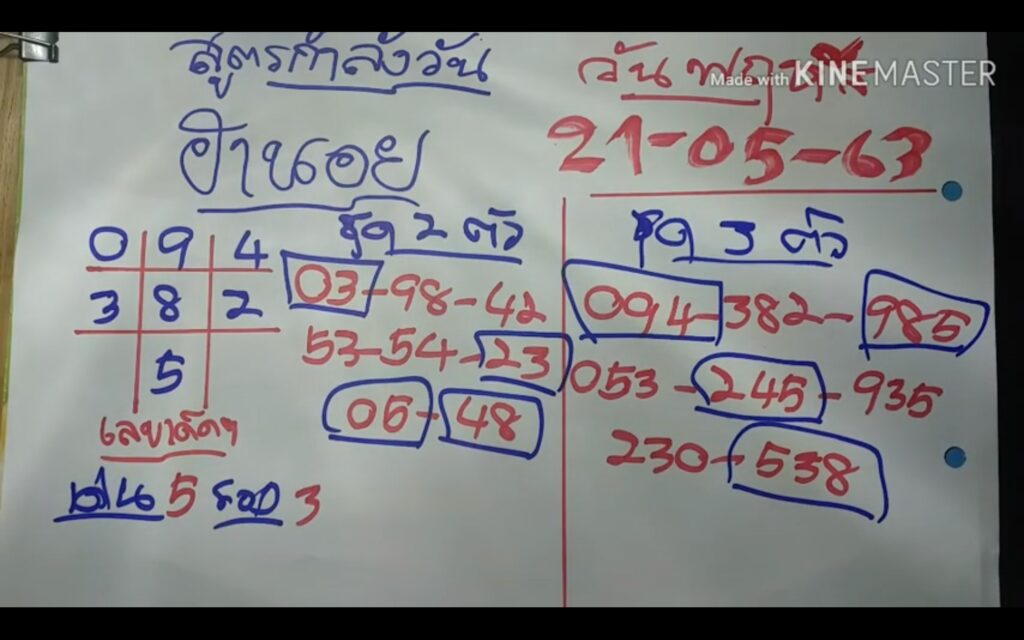 สูตรกำลังวัน
วันพฤหัส
Made with KINEMASTER
ฮานอย
21-05-63
0 9 4
3 8 2
5
ชุด 2 ตัว
03-98-42
53-54-23
05-48
ชุด 3 ตัว
094-382-985
053-245-935
230-538
เลขเด็ดๆ
เด่น 5 รอง 3